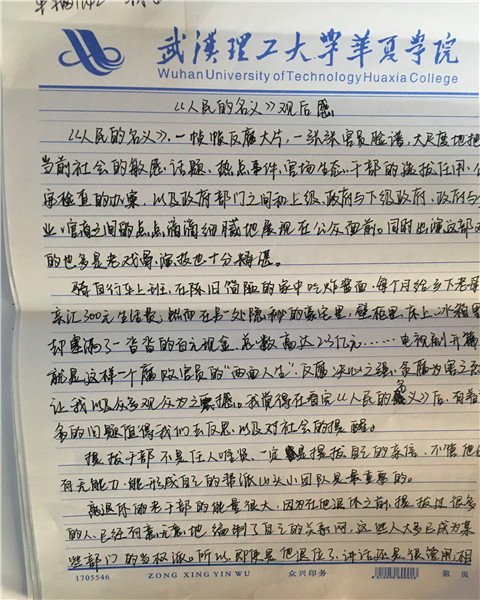 武汉理工大学华夏学院
Wuhan University of Technology Huaxia College
《人民的名义》观后感
《人民的名义》,一帧帧反腐大片,一张张官员脸谱,大尺度地把
当前社会的敏感话题、热点事件、官场生态、干部的选拔任用、
案检查的办案,以及政府部门之间和上级政府与下级政府,政府与
业、官商之间的点点滴滴细腻地展现在公众面前。同时出演这部
的也多是老戏骨,演技也十分精湛。
骑自行车上班,在陈旧简陋的家中吃炸酱面,每个月给乡下老母
亲汇300元生活费;然而在另一处隐秘的豪宅里,壁柜里、床上、冰箱里
却塞满了一沓沓的百元现金,总数高达2.3亿元……电视剧开篇
就是这样一个腐败官员的“两面人生”,反腐决心之强,贪腐为害之
让我以及众多观众为之震撼。我觉得在看完《人民的名义》后,有着
多的问题值得我们去反思,以及对社会的提醒。
提拔干部不是任人唯贤,一定是提拔自己的亲信,不管他
有无能力,能形成自己的帮派山头小团队是最重要的。
离退休的老干部的能量很大,因为在他退休之前,提拔过很多
的人,已经有意无意地编制了自己的关系网,这些人大多已成为某
些部门的当权派。所以,即使是他退位了,讲话还是很管用,相
1705546
ZONG XING YIN WU
众兴印务
第 页